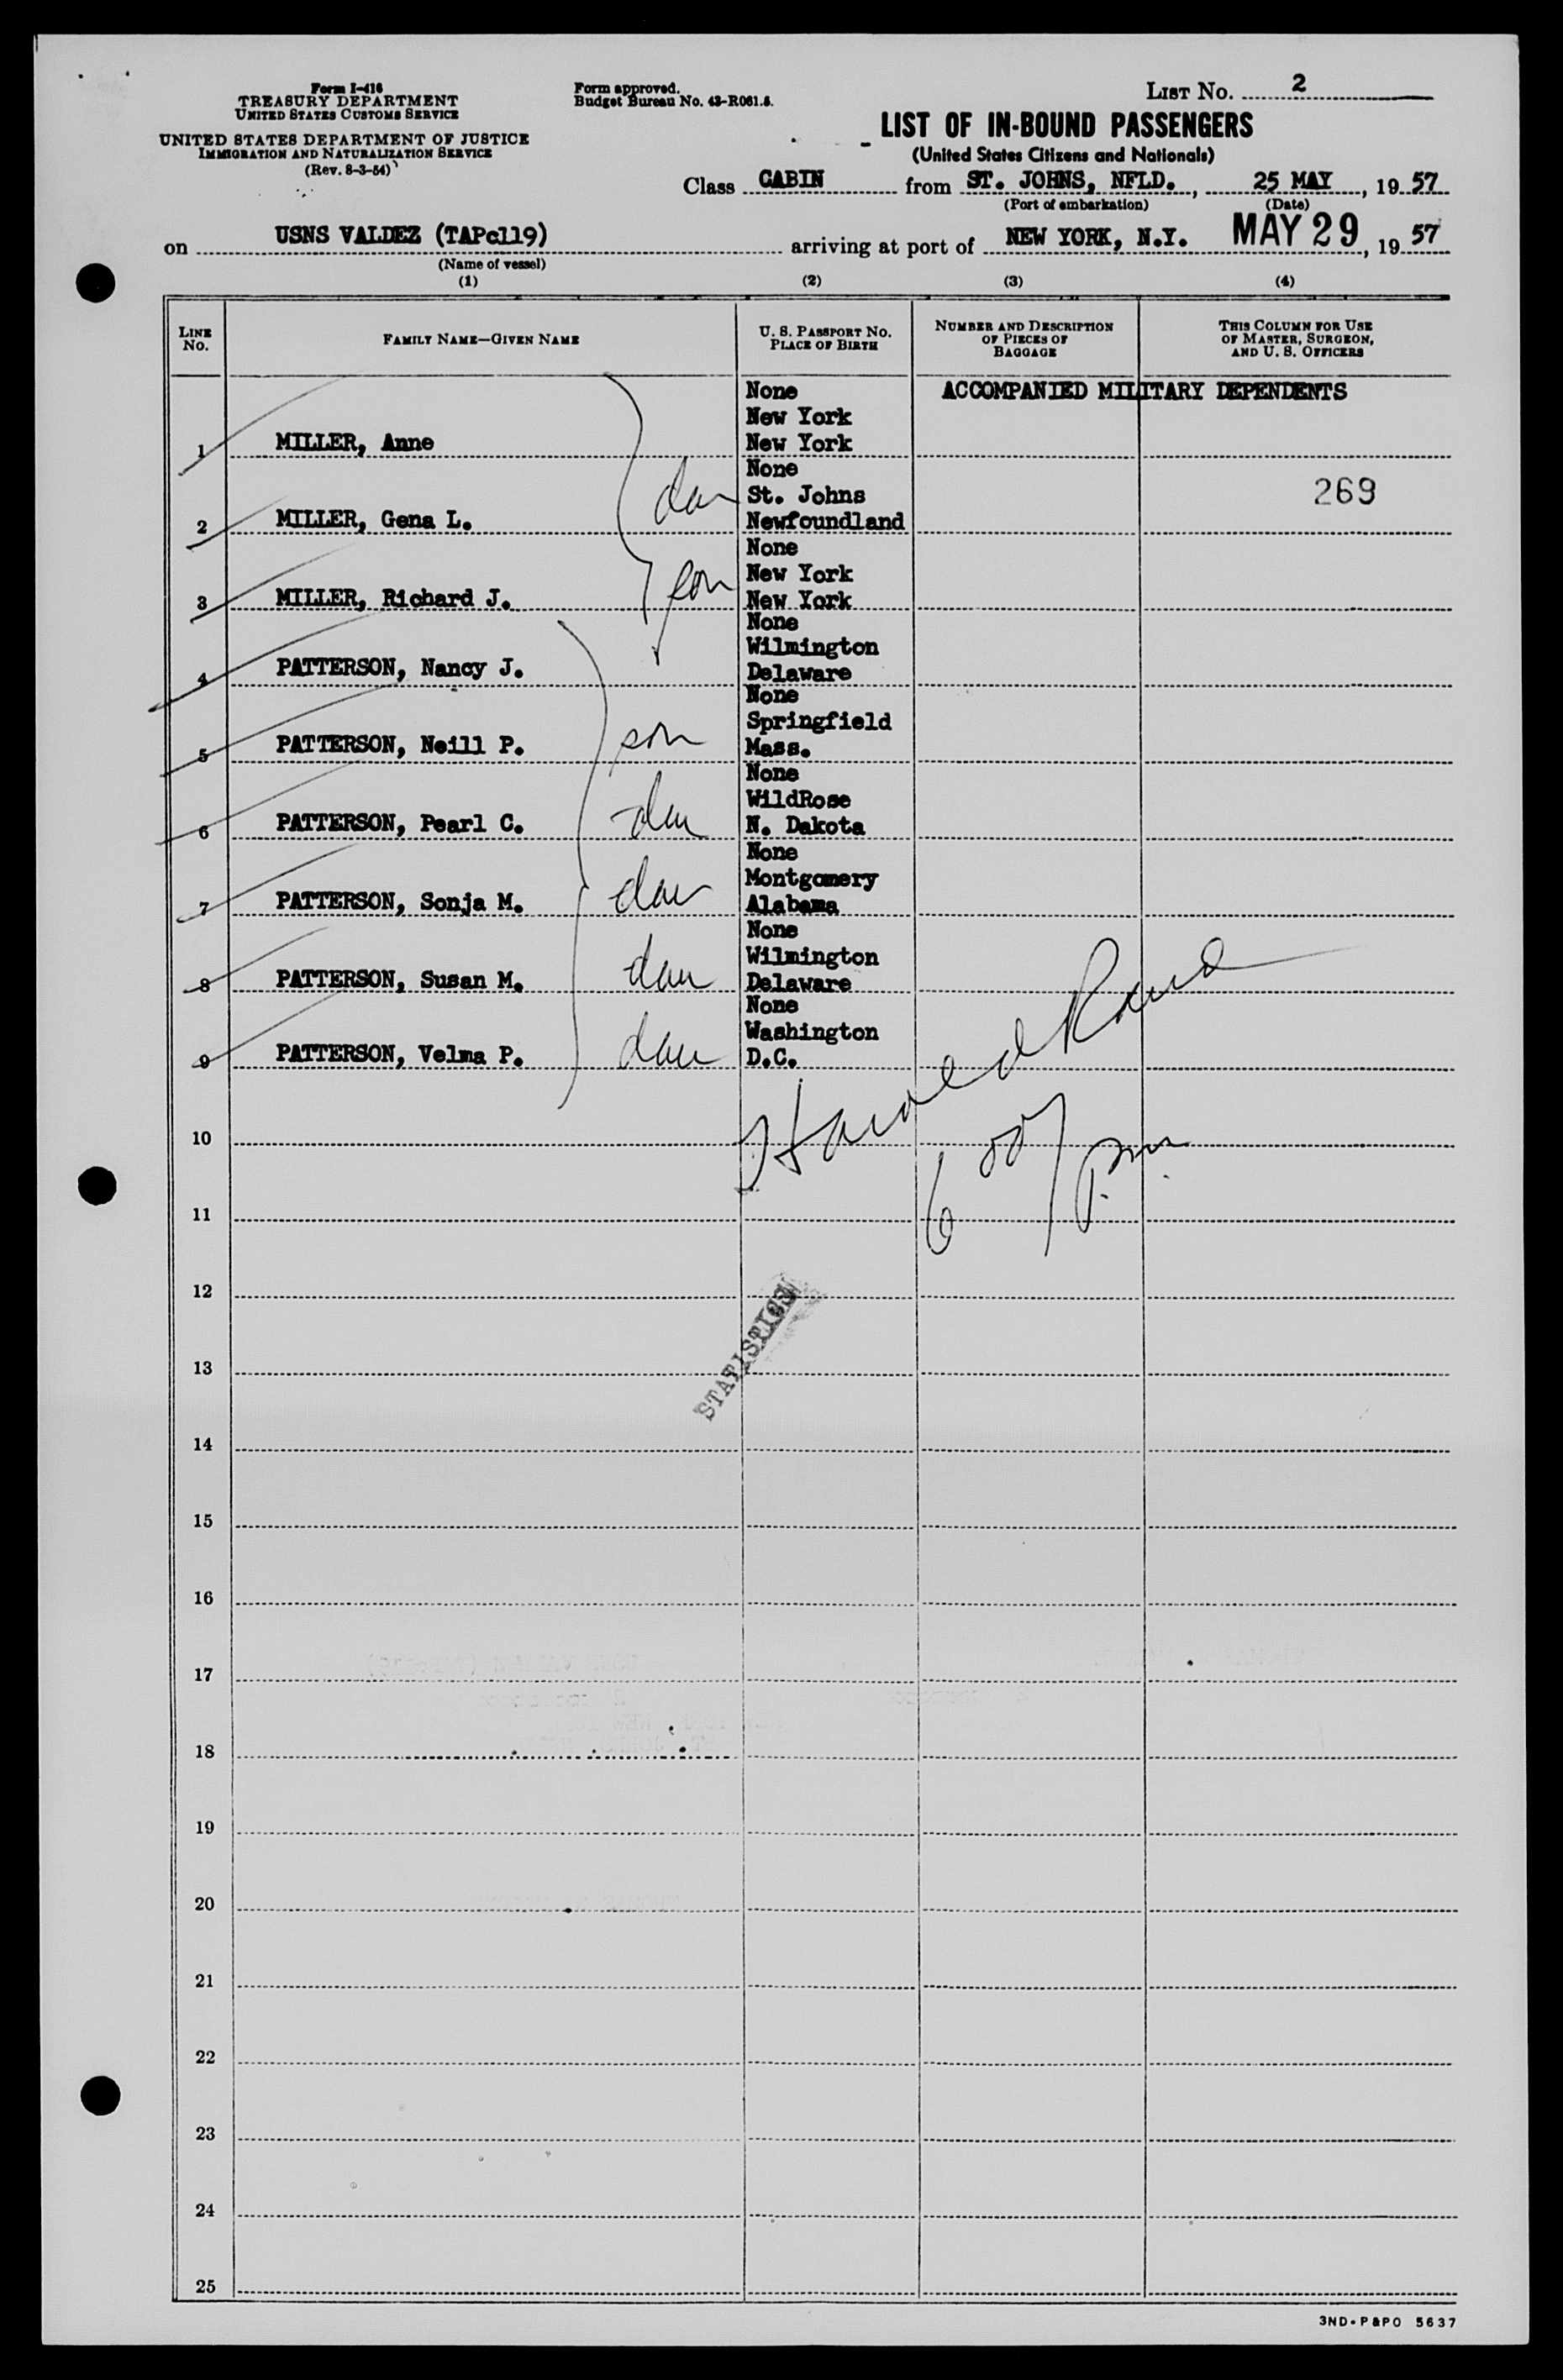 Form I-416
TREASURY DEPARTMENT
UNITED STATES CUSTOMS SERVICE
UNITED STATES DEPARTMENT OF JUSTICE
IMMIGRATION AND NATURALIZATION SERVICE
(Rev. 8-3-54)
Form approved.
Budget Bureau No. 43-R061.5.
LIST No. 2
LIST OF IN-BOUND PASSENGERS
(United States Citizens and Nationals)
Class CABIN from ST. JOHNS, NFLD., 25 MAY, 1957
(Port of embarkation) (Date)
on USNS VALDEZ (TAPc119) arriving at port of NEW YORK, N.Y. MAY 29, 1957
(Name of vessel)
(1) (2) (3) (4)
LINE No.
FAMILY NAME—GIVEN NAME
U. S. PASSPORT NO.
PLACE OF BIRTH
NUMBER AND DESCRIPTION
OF PIECES OF
BAGGAGE
THIS COLUMN FOR USE
OF MASTER, SURGEON,
AND U. S. OFFICERS
None ACCOMPANIED MILITARY DEPENDENTS
New York
1 MILLER, Anne New York
None
dau St. Johns 269
2 MILLER, Gena L. Newfoundland
None
son New York
3 MILLER, Richard J. New York
None
Wilmington
4 PATTERSON, Nancy J. Delaware
None
Springfield
5 PATTERSON, Neill P. son Mass.
None
WildRose
6 PATTERSON, Pearl C. dau N. Dakota
None
Montgomery
7 PATTERSON, Sonja M. dau Alabama
None
Wilmington
8 PATTERSON, Susan M. dau Delaware
None
Washington
9 PATTERSON, Velma P. dau D.C.
10
6 00/ p.m.
11
12
STATISTICS
13
14
15
16
17
18
19
20
21
22
23
24
25
3ND-P&PO 5637